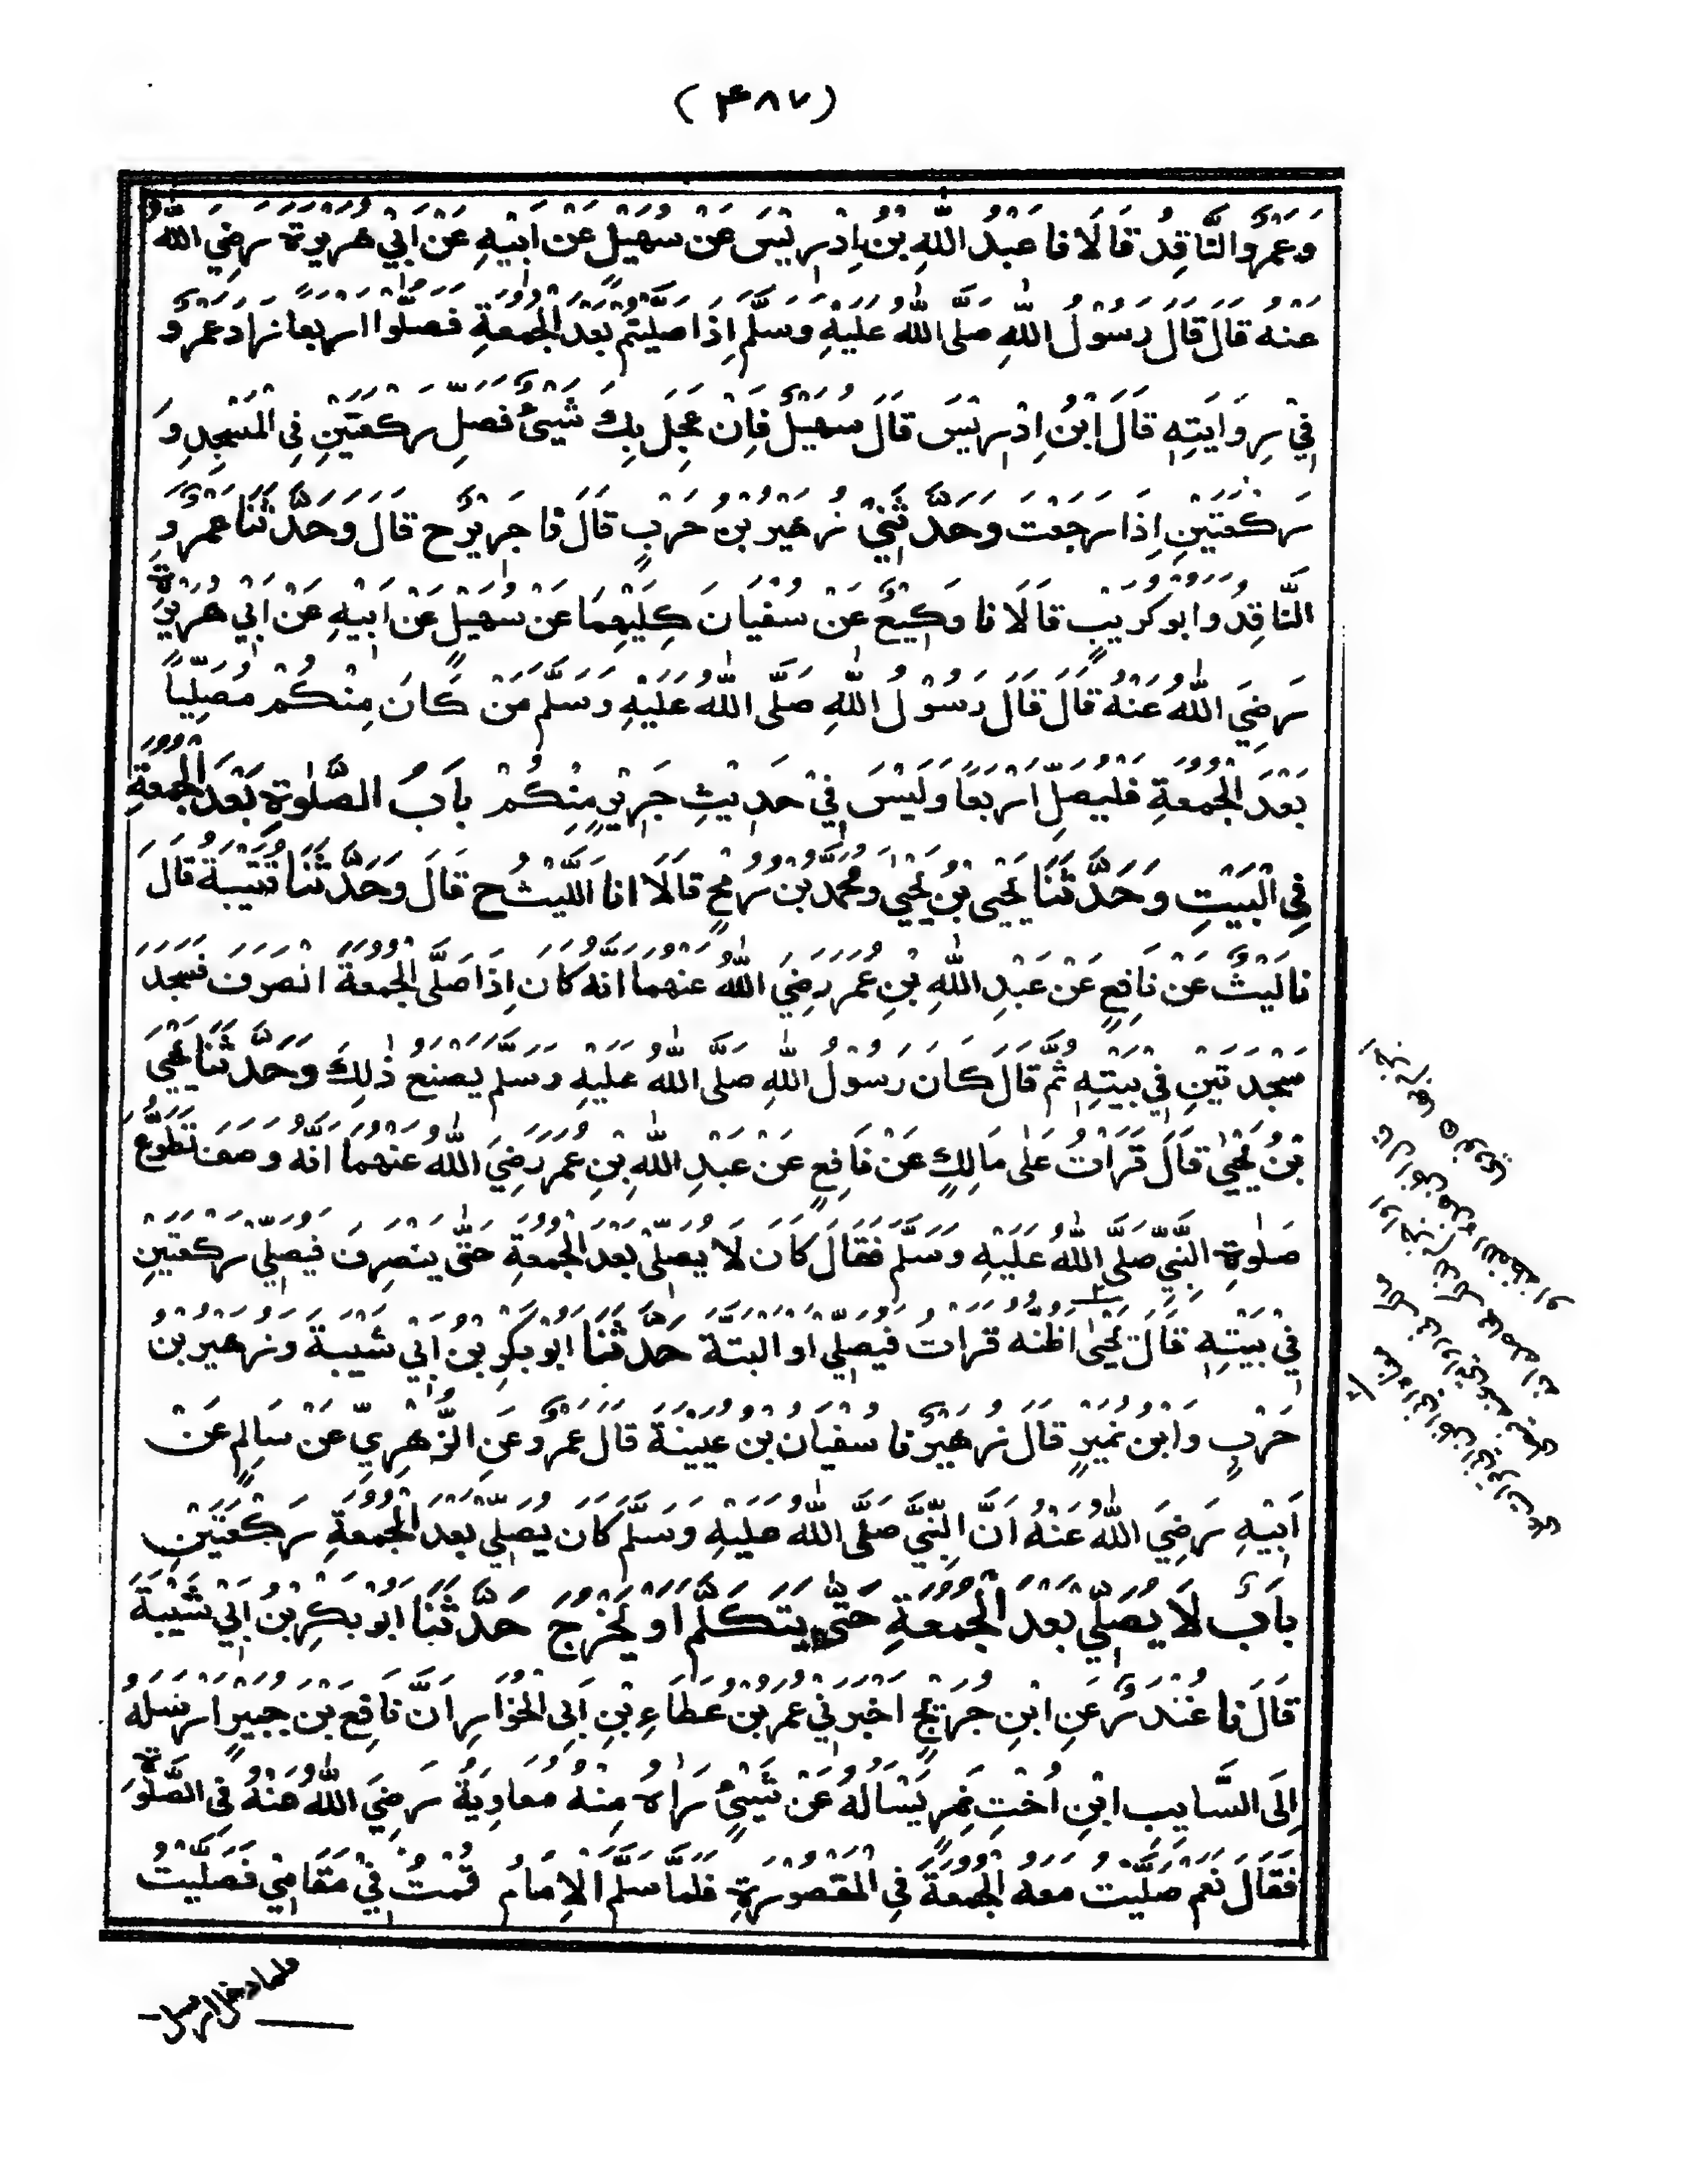 (۴۸۷)
وَعَمْرٌو النَّاقِدُ قَالَا نا عَبْدُ اللّٰهِ بْنُ اِدْرِيْسَ عَنْ سُهَيْلٍ عَنْ اَبِيْهِ عَنْ اَبِيْ هُرَيْرَةَ رَضِيَ اللّٰهُ
عَنْهُ قَالَ قَالَ رَسُوْلُ اللّٰهِ صَلَّى اللّٰهُ عَلَيْهِ وَسَلَّمَ اِذَا صَلَّيْتُمْ بَعْدَ الْجُمُعَةِ فَصَلُّوْا اَرْبَعًا زَادَ عَمْرٌو
فِيْ رِوَايَتِهٖ قَالَ ابْنُ اِدْرِيْسَ قَالَ سُهَيْلٌ فَاِنْ عَجِلَ بِكَ شَيْئٌ فَصَلِّ رَكْعَتَيْنِ فِي الْمَسْجِدِ وَ
رَكْعَتَيْنِ اِذَا رَجَعْتَ وَحَدَّثَنِيْ زُهَيْرُ بْنُ حَرْبٍ قَالَ نا جَرِيْرٌ ح قَالَ وَحَدَّثَنَا عَمْرٌو
النَّاقِدُ وَاَبُوْ كُرَيْبٍ قَالَا نا وَكِيْعٌ عَنْ سُفْيَانَ كِلَيْهِمَا عَنْ سُهَيْلٍ عَنْ اَبِيْهِ عَنْ اَبِيْ هُرَيْرَةَ
رَضِيَ اللّٰهُ عَنْهُ قَالَ قَالَ رَسُوْلُ اللّٰهِ صَلَّى اللّٰهُ عَلَيْهِ وَسَلَّمَ مَنْ كَانَ مِنْكُمْ مُصَلِّيًا
بَعْدَ الْجُمُعَةِ فَلْيُصَلِّ اَرْبَعًا وَلَيْسَ فِيْ حَدِيْثِ جَرِيْرٍ مِنْكُمْ بَابُ الصَّلٰوةِ بَعْدَ الْجُمُعَةِ
فِي الْبَيْتِ وَحَدَّثَنَا يَحْيَى بْنُ يَحْيٰى وَمُحَمَّدُ بْنُ رُمْحٍ قَالَا انا اللَّيْثُ ح قَالَ وَحَدَّثَنَا قُتَيْبَةُ قَالَ
نا لَيْثٌ عَنْ نَافِعٍ عَنْ عَبْدِ اللّٰهِ بْنِ عُمَرَ رَضِيَ اللّٰهُ عَنْهُمَا اَنَّهٗ كَانَ اِذَا صَلَّى الْجُمُعَةَ انْصَرَفَ فَسَجَدَ
سَجْدَتَيْنِ فِيْ بَيْتِهٖ ثُمَّ قَالَ كَانَ رَسُوْلُ اللّٰهِ صَلَّى اللّٰهُ عَلَيْهِ وَسَلَّمَ يَصْنَعُ ذٰلِكَ وَحَدَّثَنَا يَحْيَى
بْنُ يَحْيٰى قَالَ قَرَاْتُ عَلٰى مَالِكٍ عَنْ نَافِعٍ عَنْ عَبْدِ اللّٰهِ بْنِ عُمَرَ رَضِيَ اللّٰهُ عَنْهُمَا اَنَّهٗ وَصَفَ تَطَوُّعَ
صَلٰوةِ النَّبِيِّ صَلَّى اللّٰهُ عَلَيْهِ وَسَلَّمَ فَقَالَ كَانَ لَا يُصَلِّيْ بَعْدَ الْجُمُعَةِ حَتّٰى يَنْصَرِفَ فَيُصَلِّيْ رَكْعَتَيْنِ
فِيْ بَيْتِهٖ قَالَ يَحْيٰى اَظُنُّهٗ قَرَاْتُ فَيُصَلِّيْ اَوْ اَلْبَتَّةَ حَدَّثَنَا اَبُوْ بَكْرِ بْنُ اَبِيْ شَيْبَةَ وَزُهَيْرُ بْنُ
حَرْبٍ وَابْنُ نُمَيْرٍ قَالَ زُهَيْرٌ نا سُفْيَانُ بْنُ عُيَيْنَةَ قَالَ عَمْرٌو عَنِ الزُّهْرِيِّ عَنْ سَالِمٍ عَنْ
اَبِيْهِ رَضِيَ اللّٰهُ عَنْهُ اَنَّ النَّبِيَّ صَلَّى اللّٰهُ عَلَيْهِ وَسَلَّمَ كَانَ يُصَلِّيْ بَعْدَ الْجُمُعَةِ رَكْعَتَيْنِ
بَابٌ لَا يُصَلِّيْ بَعْدَ الْجُمُعَةِ حَتّٰى يَتَكَلَّمَ اَوْ يَخْرُجَ حَدَّثَنَا اَبُوْ بَكْرِ بْنُ اَبِيْ شَيْبَةَ
قَالَ نا غُنْدَرٌ عَنِ ابْنِ جُرَيْجٍ اَخْبَرَنِيْ عُمَرُ بْنُ عَطَاءِ بْنِ اَبِي الْخُوَارِ اَنَّ نَافِعَ بْنَ جُبَيْرٍ اَرْسَلَهٗ
اِلَى السَّايِبِ ابْنِ اُخْتِ نَمِرٍ يَسْاَلُهٗ عَنْ شَيْئٍ رَاٰهُ مِنْهُ مُعَاوِيَةُ رَضِيَ اللّٰهُ عَنْهُ فِي الصَّلٰوةِ
فَقَالَ نَعَمْ صَلَّيْتُ مَعَهُ الْجُمُعَةَ فِي الْمَقْصُوْرَةِ فَلَمَّا سَلَّمَ الْاِمَامُ قُمْتُ فِيْ مَقَامِيْ فَصَلَّيْتُ